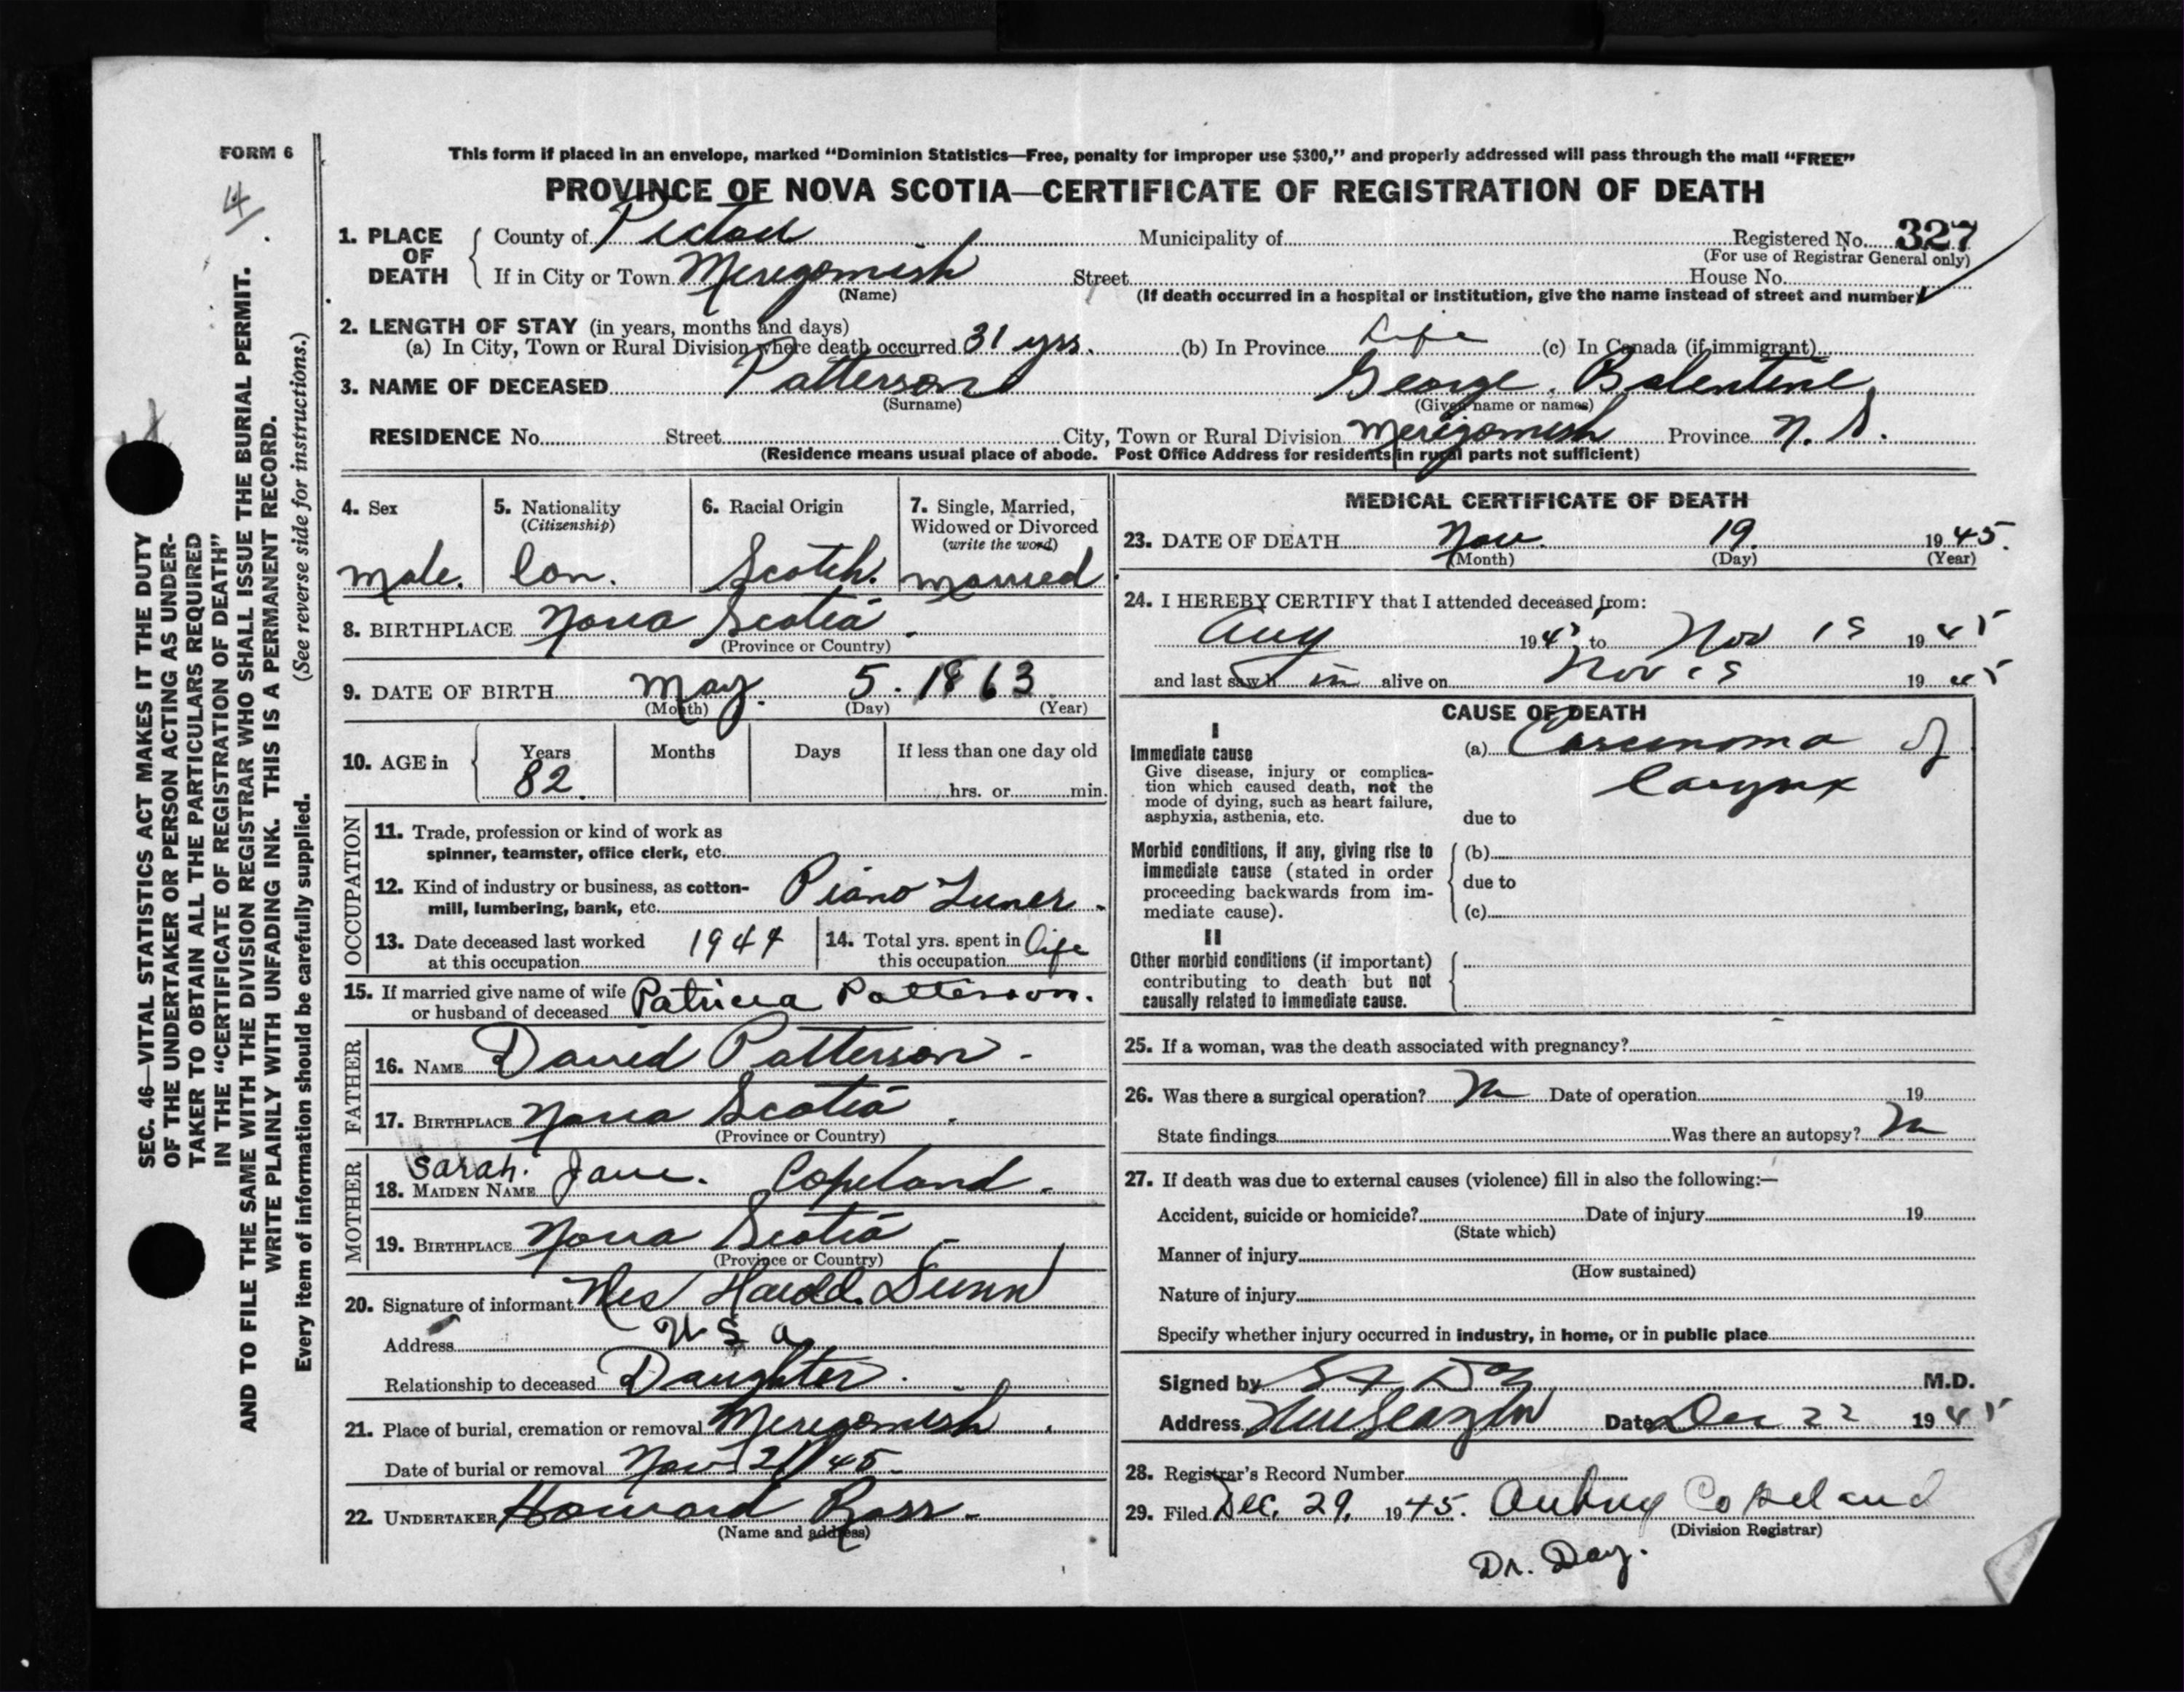 FORM 6
4
This form if placed in an envelope, marked “Dominion Statistics—Free, penalty for improper use $300,” and properly addressed will pass through the mail “FREE”
PROVINCE OF NOVA SCOTIA—CERTIFICATE OF REGISTRATION OF DEATH
1. PLACE OF DEATH
County of Pictou Municipality of Registered No. 327
(For use of Registrar General only)
If in City or Town Merigomish Street House No.
(Name) (If death occurred in a hospital or institution, give the name instead of street and number)
2. LENGTH OF STAY (in years, months and days)
(a) In City, Town or Rural Division where death occurred 31 yrs. (b) In Province Life (c) In Canada (if immigrant)
3. NAME OF DECEASED Patterson George Balentine
(Surname) (Given name or names)
RESIDENCE No. Street City, Town or Rural Division Merigomish Province N. S.
(Residence means usual place of abode. Post Office Address for residents in rural parts not sufficient)
4. Sex
male.
5. Nationality
(Citizenship)
Can.
6. Racial Origin
Scotch.
7. Single, Married,
Widowed or Divorced
(write the word)
married
8. BIRTHPLACE Nova Scotia.
(Province or Country)
9. DATE OF BIRTH May. 5. 1863
(Month) (Day) (Year)
10. AGE in
Years Months Days If less than one day old
82. hrs. or min.
OCCUPATION
11. Trade, profession or kind of work as
spinner, teamster, office clerk, etc.
12. Kind of industry or business, as cotton-
mill, lumbering, bank, etc. Piano Tuner.
13. Date deceased last worked
at this occupation 1944
14. Total yrs. spent in
this occupation life
15. If married give name of wife
or husband of deceased Patricia Patterson.
FATHER
16. NAME David Patterson.
17. BIRTHPLACE Nova Scotia.
(Province or Country)
MOTHER
18. MAIDEN NAME Sarah. Jane. Copeland.
19. BIRTHPLACE Nova Scotia
(Province or Country)
20. Signature of informant Mrs Harold Dunn
Address U S a
Relationship to deceased Daughter.
21. Place of burial, cremation or removal Merigomish.
Date of burial or removal Nov 21/45.
22. UNDERTAKER Howard Ross.
(Name and address)
MEDICAL CERTIFICATE OF DEATH
23. DATE OF DEATH Nov. 19. 1945.
(Month) (Day) (Year)
24. I HEREBY CERTIFY that I attended deceased from:
Aug 194 to Nov 19 1945
and last saw h im alive on Nov 19 1945
CAUSE OF DEATH
I
Immediate cause
Give disease, injury or complica-
tion which caused death, not the
mode of dying, such as heart failure,
asphyxia, asthenia, etc.
(a) Carcinoma of
larynx
due to
Morbid conditions, if any, giving rise to
immediate cause (stated in order
proceeding backwards from im-
mediate cause).
(b)
due to
(c)
II
Other morbid conditions (if important)
contributing to death but not
causally related to immediate cause.
25. If a woman, was the death associated with pregnancy?
26. Was there a surgical operation? No Date of operation 19
State findings Was there an autopsy? No
27. If death was due to external causes (violence) fill in also the following:—
Accident, suicide or homicide? Date of injury 19
(State which)
Manner of injury
(How sustained)
Nature of injury
Specify whether injury occurred in industry, in home, or in public place
Signed by Day M.D.
Address New Glasgow Date Dec 22 1945
28. Registrar's Record Number
29. Filed Dec. 29, 1945. Aubrey Copeland
(Division Registrar)
Dr. Day.
SEC. 46—VITAL STATISTICS ACT MAKES IT THE DUTY
OF THE UNDERTAKER OR PERSON ACTING AS UNDER-
TAKER TO OBTAIN ALL THE PARTICULARS REQUIRED
IN THE “CERTIFICATE OF REGISTRATION OF DEATH”
AND TO FILE THE SAME WITH THE DIVISION REGISTRAR WHO SHALL ISSUE THE BURIAL PERMIT.
WRITE PLAINLY WITH UNFADING INK. THIS IS A PERMANENT RECORD.
Every item of information should be carefully supplied. (See reverse side for instructions.)